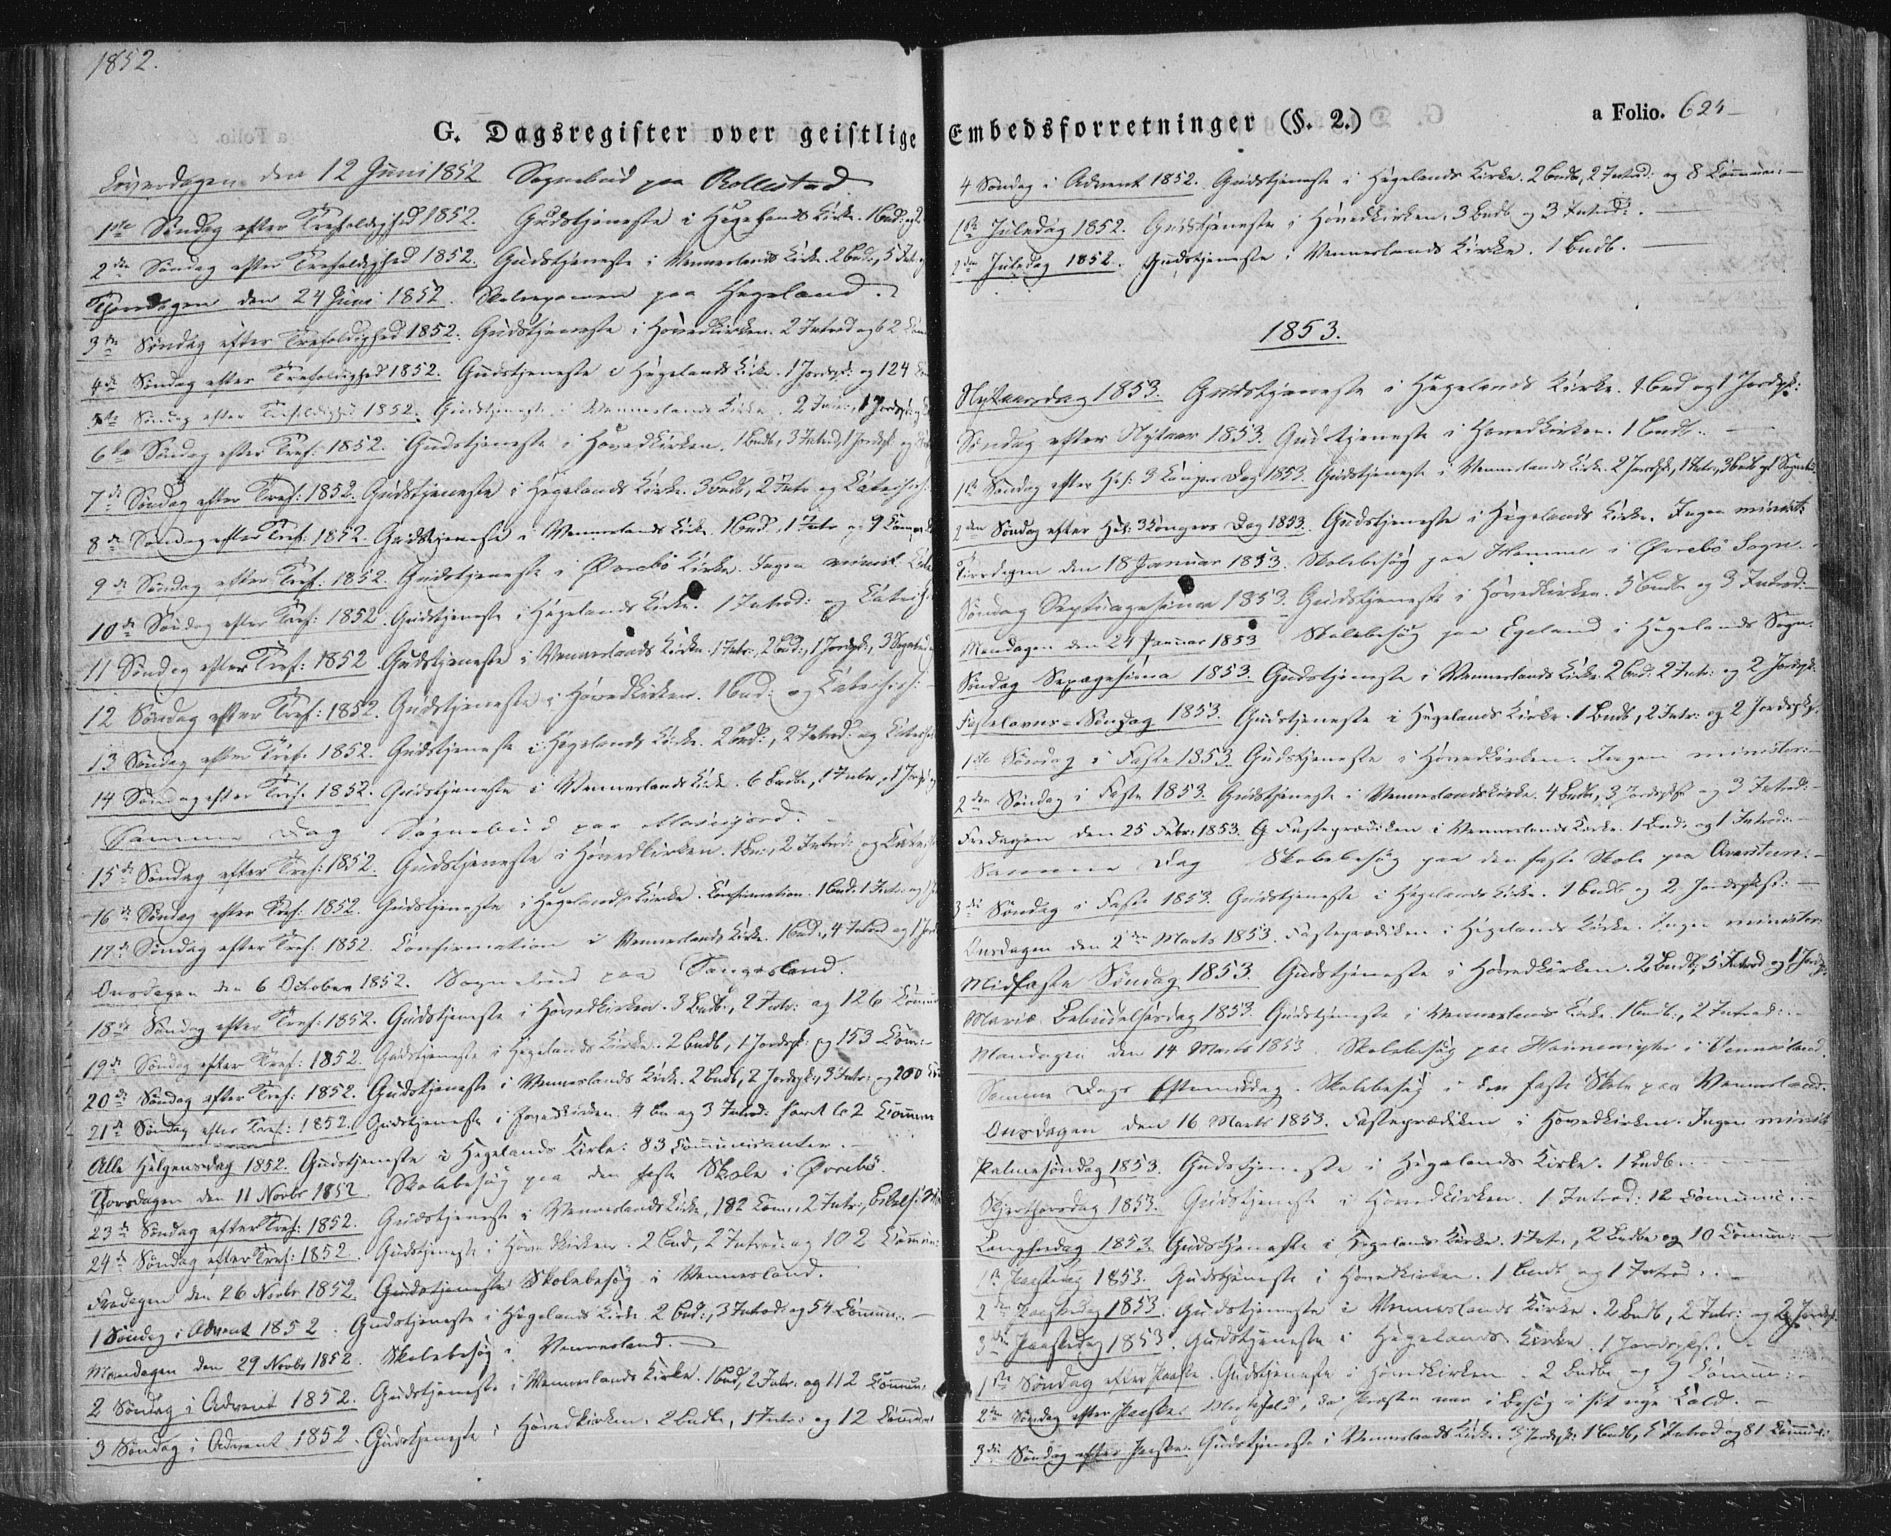 1852.
G. Dagsregister over geistlige Embedsforretninger (§. 2.)
a Folio. 624
Løverdagen den 12 Juni 1852 Sognebud paa Rollestad
1ste Søndag efter Trefoldighed 1852. Gudstjeneste i Hegelands Kirke. 1 Bud:
2den Søndag efter Trefoldighed 1852. Gudstjeneste i Vennerlands Kirke. 2 Bud:, 5 Int
Torsdagen den 24 Juni 1852. Skoleexamen paa Hegeland.
3die Søndag efter Trefoldighed 1852. Gudstjeneste i Hovedkirken. 2 Introd og 62
4de Søndag efter Trefoldighed 1852. Gudstjeneste i Hegelands Kirke. 1 Jordspk: og 124
5te Søndag efter Trefoldighed 1852. Gudstjeneste i Vennerlands Kirke. 2 Intr:, 1 Jordspk:
6te Søndag efter Tref: 1852. Gudstjeneste i Hovedkirken. 1 Budb, 3 Introd, 1 Jordspk og
7de Søndag efter Tref: 1852. Gudstjeneste i Hegelands Kirke. 3 Budb, 2 Intr og Catechis:
8de Søndag efter Tref: 1852. Gudstjeneste i Vennerlands Kirke. 1 Bud, 1 Intr og 9
9de Søndag efter Tref. 1852. Gudstjeneste i Øvrebø Kirke. Ingen minist.
10de Søndag efter Tref: 1852. Gudstjeneste i Hegelands Kirke. 1 Introd: og Catechi
11 Søndag efter Tref: 1852 Gudstjeneste i Vennerlands Kirke. 1 Intr:, 2 Bud:, 1 Jordspk:, 3 Sognebud
12 Søndag efter Tref: 1852. Gudstjeneste i Hovedkirken. 1 Bud: og Catechis:
13 Søndag efter Tref. 1852. Gudstjeneste i Hegelands Kirke. 2 Bud:, 2 Introd: og Catechi
14 Søndag efter Tref. 1852. Gudstjeneste i Vennerlands Kirke. 6 Budb, 1 Intr, 1 Jordsp
Samme Dag Sognebud paa
15de Søndag efter Tref: 1852. Gudstjeneste i Hovedkirken. 1 Bu:, 2 Introd: og Catechi
16de Søndag efter Tref: 1852. Gudstjeneste i Hegelands Kirke. Confirmation. 1 Bud: 1 Intr: og 1
17de Søndag efter Tref: 1852. Confirmation i Vennerlands Kirke. 1 Bud:, 4 Introd og 1 Jord
Onsdagen den 6 October 1852. Sognebud paa
18de Søndag efter Tref: 1852. Gudstjeneste i Hovedkirken. 3 Budb., 2 Intr: og 126 Commun
19de Søndag efter Tref: 1852. Gudstjeneste i Hegelands Kirke. 2 Budb, 1 Jordspk: og 153 Com:
20de Søndag efter Tref: 1852. Gudstjeneste i Vennerlands Kirke. 2 Budb, 2 Jordspk:, 3 Intr: og 200
21de Søndag efter Tref: 1852. Gudstjeneste i Hovedkirken. 4 Bu og 3 Introd: 2 Commun
Alle Helgensdag 1852. Gudstjeneste i Hegelands Kirke: 83 Communicanter.
Torsdagen den 11 Novbr 1852. Skolebesøg paa den faste Skole i Øvrebø.
23de Søndag efter Tref: 1852. Gudstjeneste i Vennerlands Kirke, 182 Com:, 2 Intr:,
24de Søndag efter Tref: 1852. Gudstjeneste i Hovedkirken. 2 Bud, 2 Introd: og 102 Commun:
Fredagen den 26 Novbr 1852. Gudstjeneste Skolebesøg i Vennerland.
1 Søndag i Advent 1852. Gudstjeneste i Hegelands Kirke. 2 Bud:, 3 Introd: og 54 Commun:
Mandagen den 29 Novbr 1852. Skolebesøg i Vennerland.
2 Søndag i Advent 1852. Gudstjeneste i Vennerlands Kirke. 1 Bud, 2 Intr: og 112 Commun:
3 Søndag i Advent 1852. Gudstjeneste i Hovedkirken. 2 Budb, 1 Intr: og 12 Commun
4 Søndag i Advent 1852. Gudstjeneste i Hegelands Kirke. 2 Budb, 2 Introd: og 8 Commun:
1ste Juledag 1852. Gudstjeneste i Hovedkirken. 3 Budb og 3 Introd:.
2den Juledag 1852. Gudstjeneste i Vennerlands Kirke. 1 Budb.
1853.
Nytaarsdag 1853. Gudstjeneste i Hegelands Kirke. 1 Bud og 1 Jordspk:
Søndag efter Nytaar 1853. Gudstjeneste i Hovedkirken. 1 Budb.
1ste Søndag efter Hel: 3 Konger Dag 1853. Gudstjeneste i Vennerlands Kirke. 2 Jordspk, 1 Intr:, 3 Budb og 1 Sognebud
2den Søndag efter Hel: 3 Kongers Dag 1853. Gudstjeneste i Hegelands Kirke. Ingen minist:
Tirsdagen den 18 Januar 1853. Skolebesøg paa Homme i Øvrebø Sogn.
Søndag Septuagesima 1853. Gudstjeneste i Hovedkirken. 5 Budb og 3 Introd:
Mandagen den 24 Januar 1853 Skolebesøg paa Egeland i Hegelands Sogn.
Søndag Sexagesima 1853. Gudstjeneste i Vennerlands Kirke 2 Bud: 2 Intr: og 2 Jordspk:
Fastelavns-Søndag 1853. Gudstjeneste i Hegelands Kirke. 1 Budb, 2 Intr: og 2 Jordspk.
1ste Søndag i Faste 1853. Gudstjeneste i Hovedkirken. Ingen minister:
2den Søndag i Faste 1853. Gudstjeneste i Vennerlandskirke. 4 Budb, 3 Jordspk og 3 Introd:
Fredagen den 25 Febr: 1853. Fasteprædiken i Vennerlands Kirke. 1 Bud: og 1 Introd:
Samme Dag Skolebesøg paa den faste Skole paa
3die Søndag i Faste 1853. Gudstjeneste i Hegelands Kirke. 1 Budb og 2 Jordspk:
Onsdagen den 2den Marts 1853. Fasteprædiken i Hegelands Kirke. Ingen minister:
Midfaste Søndag 1853. Gudstjeneste i Hovedkirken. 2 Budb, 5 Introd og 1 Jordsp:
Mariæ Bebudelsesdag 1853. Gudstjeneste i Vennerlands Kirke. 1 Budb., 2 Introd:
Mandagen den 14 Marts 1853. Skolebesøg paa i Vennerland.
Samme Dags Eftermiddag. Skolebesøg i den faste Skole paa Vennerland.
Onsdagen den 16 Marts 1853. Fasteprædiken i Hovedkirken. Ingen minist
Palmesøndag 1853. Gudstjeneste i Hegelands Kirke. 1 Budb.
Skjertorsdag 1853. Gudstjeneste i Hovedkirken. 1 Introd: 12 Commun:
Langfredag 1853. Gudstjeneste i Hegelands Kirke. 1 Int., 2 Budbe og 10 Commun:
1ste Paaskedag 1853. Gudstjeneste i Hovedkirken. 1 Budb og 1 Introd.
2den Paaskedag 1853. Gudstjeneste i Vennerlands Kirke. 2 Budb, 2 Intr: og 2 Jordspk.
3die Paaskedag 1853. Gudstjeneste i Hegelands Kirke. 1 Jordspk.
1ste Søndag efter Paaske. Gudstjeneste i Hovedkirken. 2 Budbe og 9 Commun:
2den Søndag efter Paaske. Messefald, da Præsten var i Besøg i sit nye Kald.
3die Søndag efter Paaske. Gudstjeneste i Vennerlands Kirke. Jordspk: 1 Budb, 5 Introd og 81 Commun: